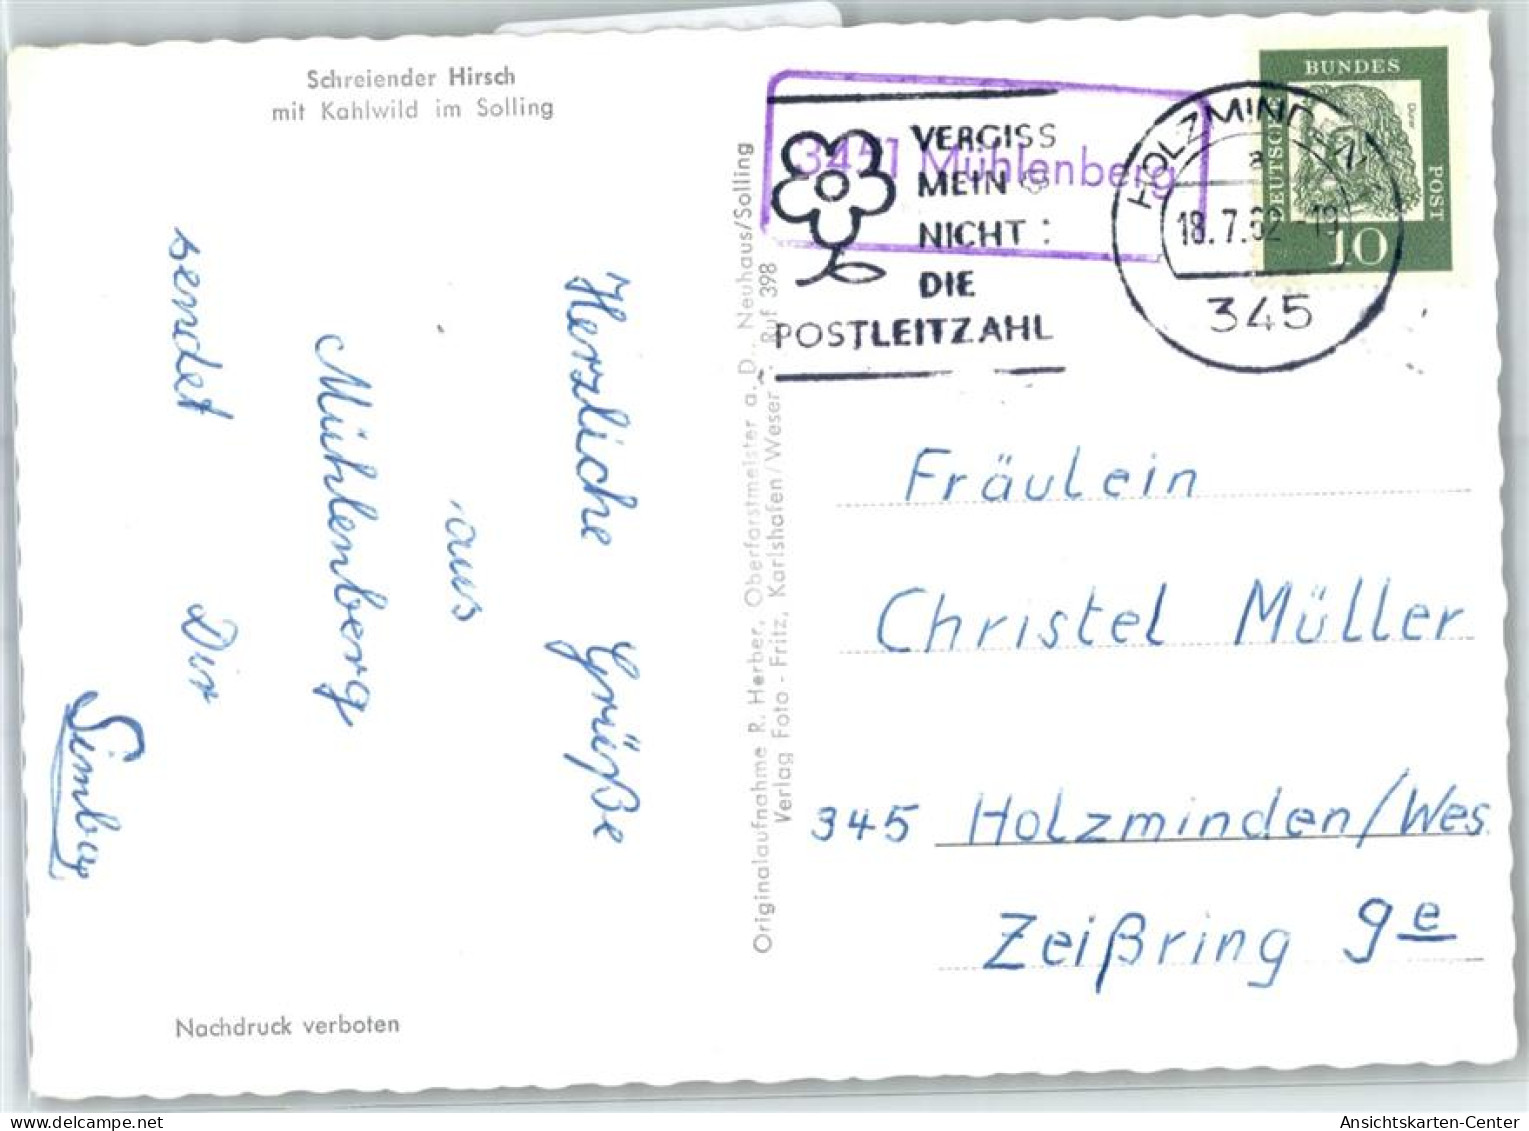 Schreiender Hirsch
mit Kahlwild im Solling
Herzliche Grüße
aus
Mühlenberg
sendet Dir
Nachdruck verboten
Originalaufnahme R. Herber, Oberforstmeister a. D., Neuhaus/Solling
Verlag Foto - Fritz, Karlshafen/Weser . Ruf 398
3451 Mühlenberg
VERGISS
MEIN
NICHT:
DIE
POSTLEITZAHL
HOLZMINDEN 1
a
18.7.62-19
345
BUNDES
DEUTSCHE
POST
Dürer
10
Fräulein
Christel Müller
345 Holzminden/Wes.
Zeißring 9e
delcampe.net
Ansichtskarten-Center